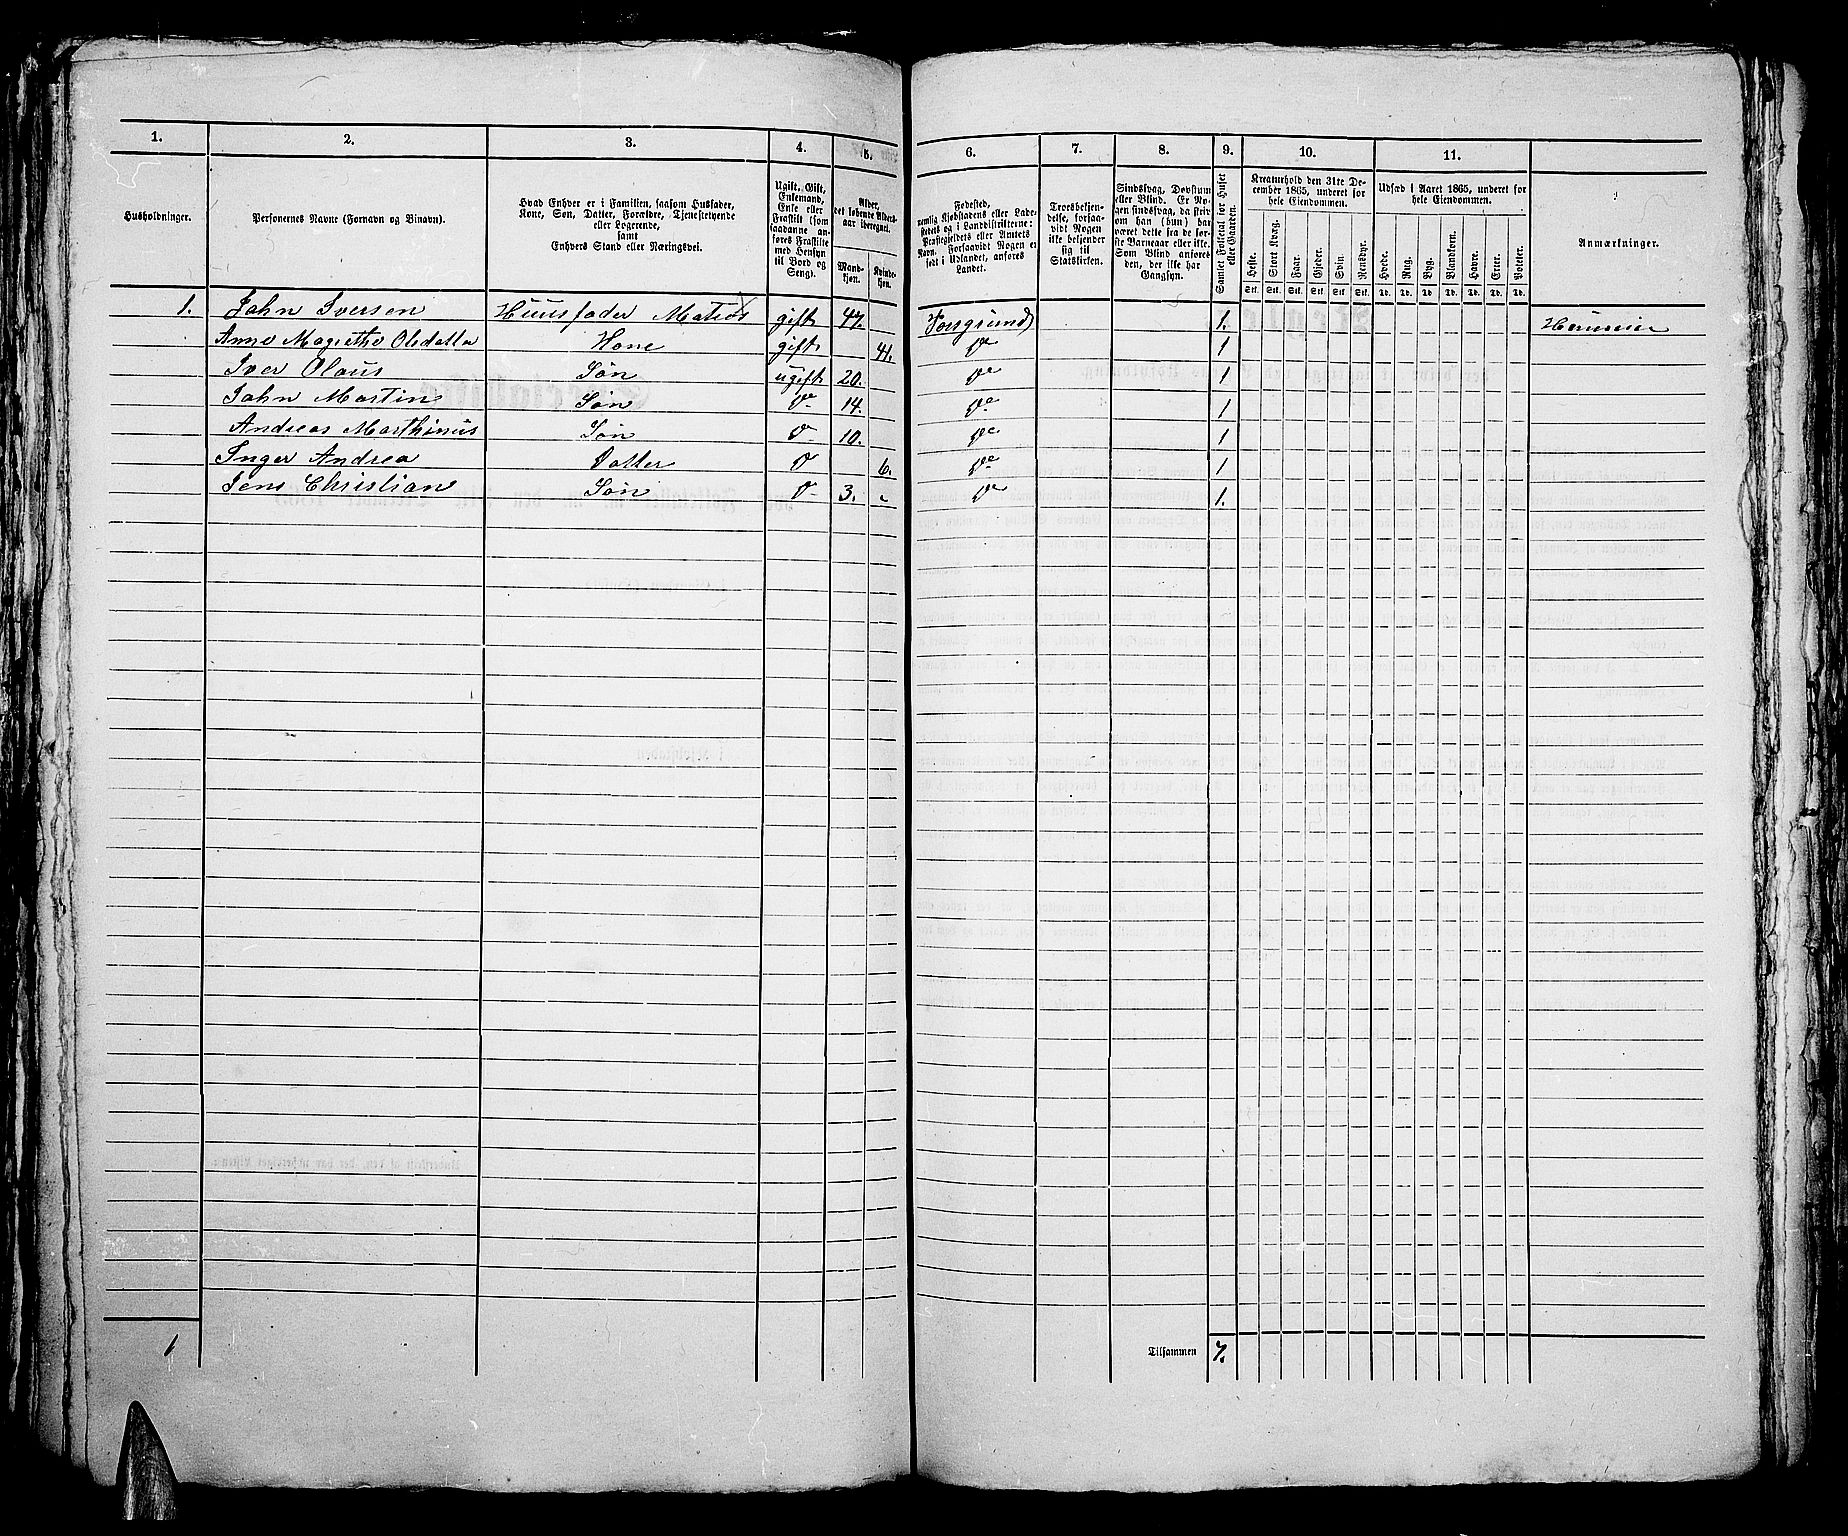 1. 2. 3. 4. 5. 6. 7. 8. 9. 10. 11.
Husholdninger.
Personernes Navne (Fornavn og Binavn).
Hvad Enhver er i Familien, saasom Husfader,
Kone, Søn, Datter, Forældre, Tjenestetyende
eller Logerende,
samt
Enhvers Stand eller Næringsvei.
Ugift, Gift,
Enkemand,
Enke eller
Fraskilt (som
saadanne an-
føres Fraskilte
med Hensyn
til Bord og
Seng).
Alder,
det løbende Alders-
aar iberegnet.
Mand-
kjøn.
Kvinde-
kjøn.
Fødested,
nemlig Kjøbstadens eller Lade-
stedets og i Landdistrikterne:
Præstegjeldets eller Amtets
Navn. Forsaavidt Nogen er
født i Udlandet, anføres
Landet.
Troesbekjen-
delse, forsaa-
vidt Nogen
ikke bekjender
sig til
Statskirken.
Sindssvag, Døvstum
eller Blind. Er No-
gen sindssvag, da skriv
om han (hun) har
været dette fra de før-
ste Barneaar eller ikke.
Som Blind anføres
den, der ikke har
Gangsyn.
Samlet Folketal for Huset
eller Gaarden.
Kreaturhold den 31te De-
cember 1865, underet for
hele Eiendommen.
Heste. Stort Kvæg. Faar. Gjeder. Svin. Rensdyr.
Stk. Stk. Stk. Stk. Stk. Stk.
Udsæd i Aaret 1865, underet for
hele Eiendommen.
Hvede. Rug. Byg. Blandkorn. Havre. Erter. Poteter.
Td. Td. Td. Td. Td. Td. Td.
Anmærkninger.
1. John Iversen Huusfader gift 47. Porsgrund 1.
Anne Magrethe Olsdatter Kone gift 41. Do 1
Iver Olaus Søn ugift 20. Do 1
John Martin Søn Do 14. Do 1
Andreas Marthinus Søn D 10. Do 1
Inger Andrea Datter D 6. Do 1
Jens Christian Søn D 3. Do 1.
1 Tilsammen 7.